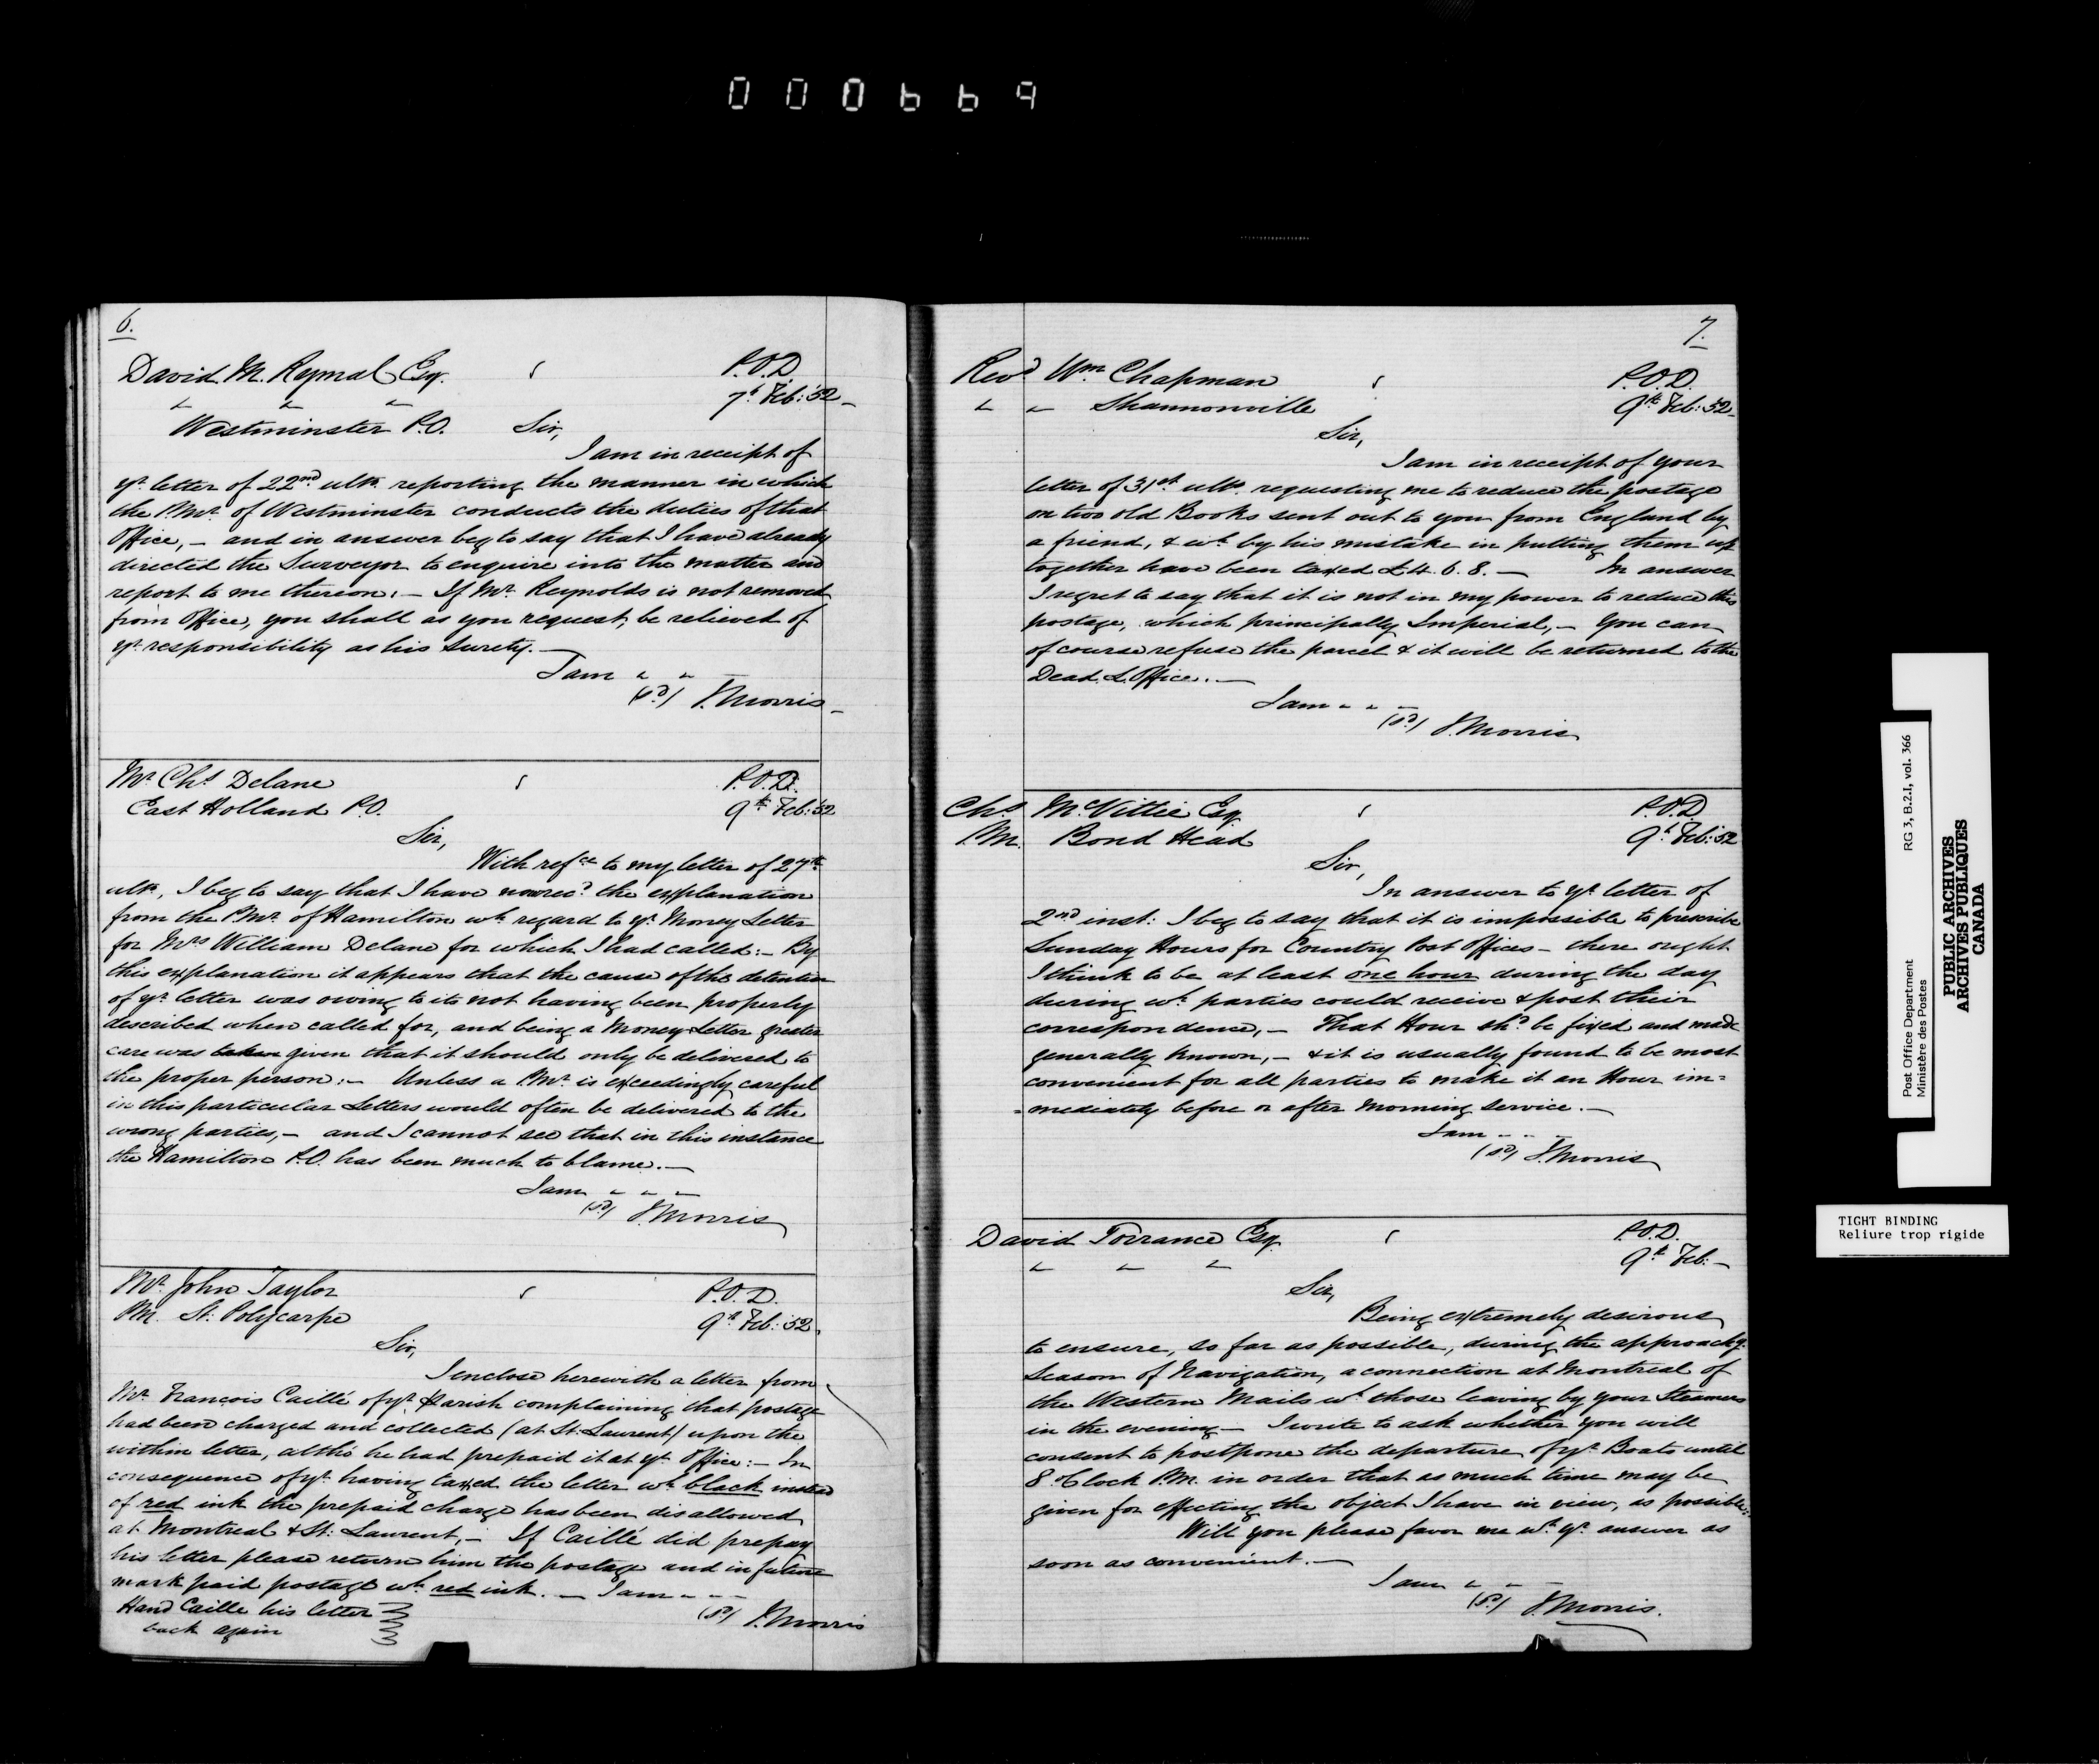 000669
6.
David M. Rymal Esq.
P.O.D.
" " "
7th Feb: '52
Westminster P.O. Sir,
I am in receipt of
yr. letter of 22nd ulto. reporting the manner in which
the P.Mr. of Westminster conducts the duties of that
Office, – and in answer beg to say that I have already
directed the Surveyor to enquire into the matter and
report to me thereon. – If Mr. Reynolds is not removed
from Office, you shall as you request, be relieved of
yr. responsibility as his Surety. –
I am " "
(sd) J. Morris
Mr. Chs Delane
P.O.D.
East Holland P.O.
9th Feb: '52
Sir,
With refce to my letter of 27th
ulto., I beg to say that I have now recd. the explanation
from the P.Mr. of Hamilton wh. regard to yr. Money Letter
for Mrs William Delane for which I had called: – By
this explanation it appears that the cause of the detention
of yr. letter was owing to its not having been properly
described when called for, and being a Money Letter greater
care was taken given that it should only be delivered to
the proper person: – Unless a P.Mr. is exceedingly careful
in this particular Letters would often be delivered to the
wrong parties, – and I cannot see that in this instance
the Hamilton P.O. has been much to blame. –
I am " " "
(sd) J. Morris
Mr. John Taylor
P.O.D.
P.M. St. Polycarpe
9th Feb: '52
Sir,
I enclose herewith a letter from
Mr. François Caillé of yr. Parish complaining that postage
had been charged and collected (at St. Laurent) upon the
within letter, altho' he had prepaid it at yr. Office: – In
consequence of yr. having taxed the letter wh. black instead
of red ink the prepaid charge has been disallowed
at Montreal & St: Laurent, – If Caillé did prepay
his letter please return him the postage and in future
mark paid postage wh. red ink. – I am " " "
Hand Caille his letter
(sd) J. Morris
back again
7.
Revd Wm Chapman
P.O.D.
" " Shannonville
9th Feb: '52
Sir,
I am in receipt of your
letter of 31st ulto. requesting me to reduce the postage
on two old Books sent out to you from England by
a friend, & wh. by his mistake in putting them up
together have been taxed £4. 6. 8. – In answer
I regret to say that it is not in my power to reduce this
postage, which principally Imperial, – You can
of course refuse the parcel & it will be returned to the
Dead L. Office. –
I am " " "
(sd) J. Morris
Chs. McVittie Esq.
P.O.D.
P.M. Bond Head
9th Feb: '52
Sir,
In answer to yr. letter of
2nd inst: I beg to say that it is impossible to prescribe
Sunday Hours for Country Post Offices – there ought
I think to be at least one hour during the day
during wh. parties could receive & post their
correspondence, – That Hour shd. be fixed and made
generally known, – & it is usually found to be most
convenient for all parties to make it an Hour im=
=mediately before or after Morning Service. –
I am " " "
(sd) J. Morris
David Torrance Esq.
P.O.D.
" " "
9th Feb: –
Sir,
Being extremely desirous
to ensure, so far as possible, during the approachg.
Season of Navigation, a connection at Montreal of
the Western Mails wh. those leaving by your Steamers
in the evening – I write to ask whether you will
consent to postpone the departure of yr. Boats until
8 o'Clock P.M. in order that as much time may be
given for effecting the object I have in view, as possible:
Will you please favor me wh. yr. answer as
soon as convenient. –
I am " "
(sd) J. Morris.
Post Office Department RG 3, B.2.I, vol. 366
Ministère des Postes
PUBLIC ARCHIVES
ARCHIVES PUBLIQUES
CANADA
TIGHT BINDING
Reliure trop rigide